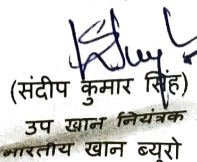 (संदीप कुमार सिंह)
उप खान नियंत्रक
भारतीय खान ब्यूरो